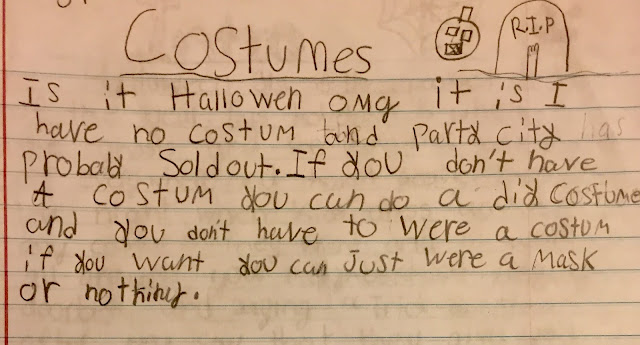 Costumes
R.I.P
Is it Hallowen omg it is I
have no costum and party city has
probaly Sold out. If you don't have
A costum you can do a diy costume
and you don't have to were a costum
if you want you can just were a mask
or nothing.